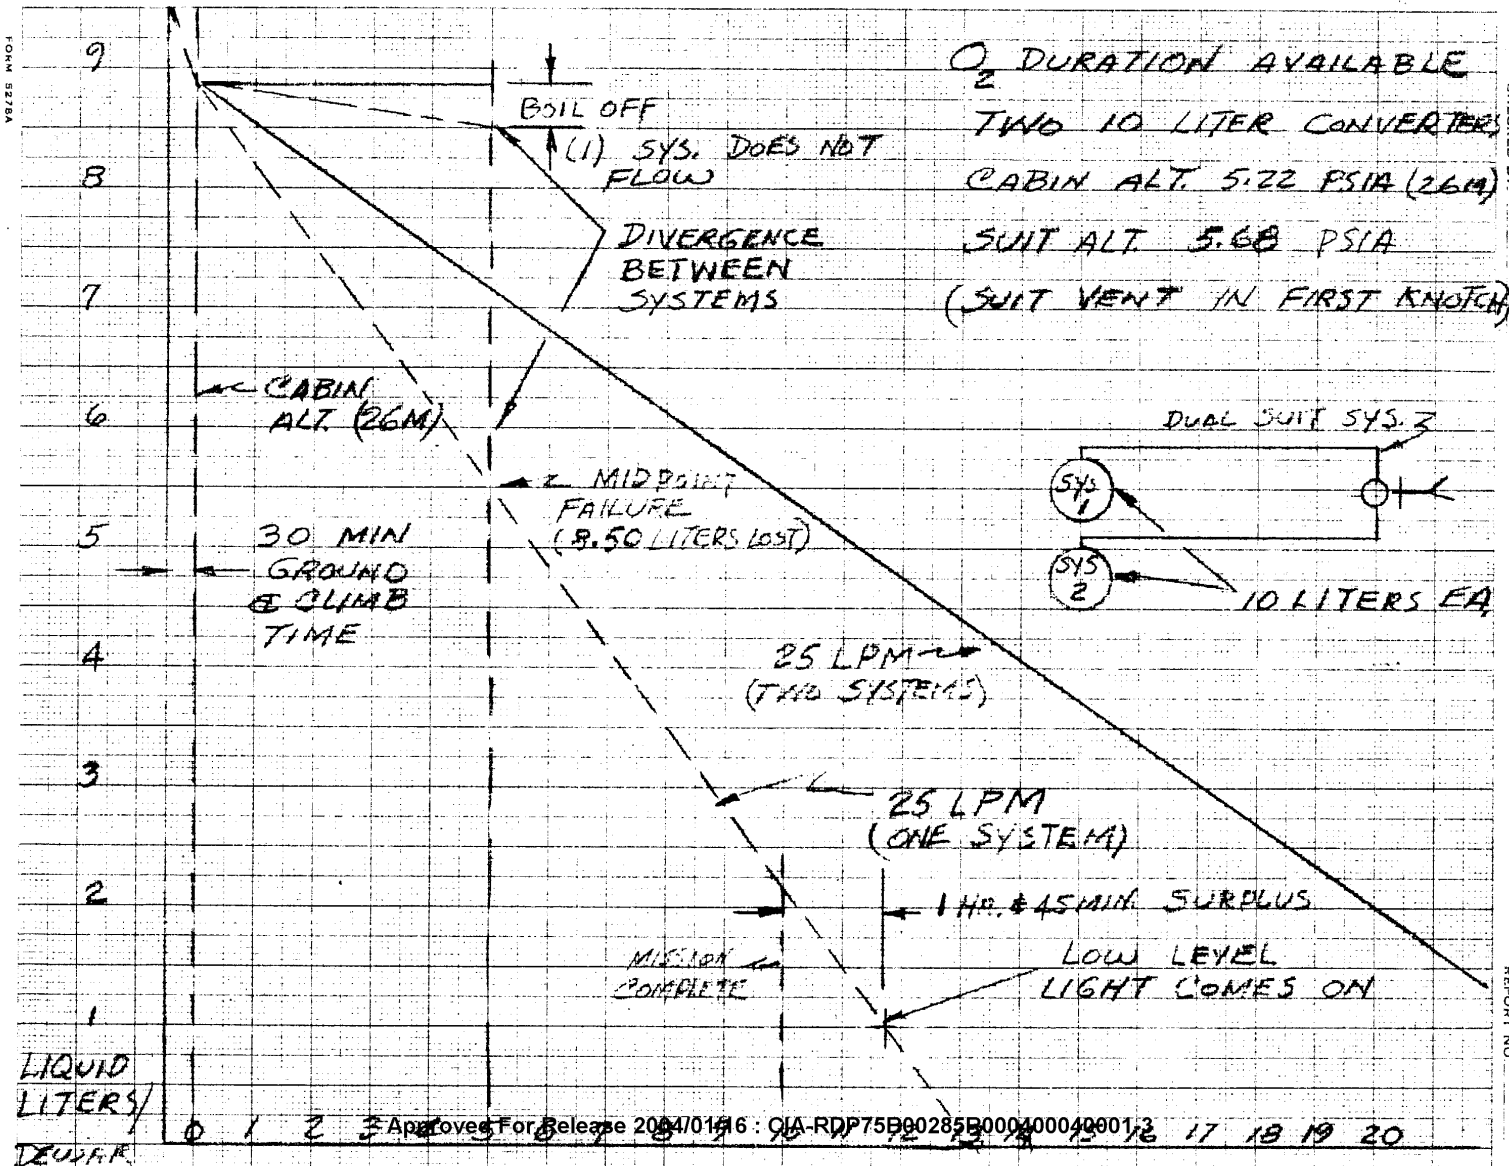 FORM 5278A
O2 DURATION AVAILABLE
TWO 10 LITER CONVERTERS
CABIN ALT. 5.22 PSIA (26M)
SUIT ALT. 5.68 PSIA
(SUIT VENT IN FIRST KNOTCH)
9
8
7
6
5
4
3
2
1
BOIL OFF
(1) SYS. DOES NOT
FLOW
DIVERGENCE
BETWEEN
SYSTEMS
CABIN
ALT. (26M)
MIDPOINT
FAILURE
(8.50 LITERS LOST)
30 MIN
GROUND
& CLIMB
TIME
DUAL SUIT SYS.
SYS
1
SYS
2
10 LITERS EA
25 LPM
(TWO SYSTEMS)
25 LPM
(ONE SYSTEM)
1 HR. & 45 MIN. SURPLUS
MISSION
COMPLETE
LOW LEVEL
LIGHT COMES ON
LIQUID
LITERS/
DEWAR
0 1 2 3 5 6 8 10 12 13 14 15 16 17 18 19 20
Approved For Release 2004/01/16 : CIA-RDP75B00285R000400040001-3
REPORT NO